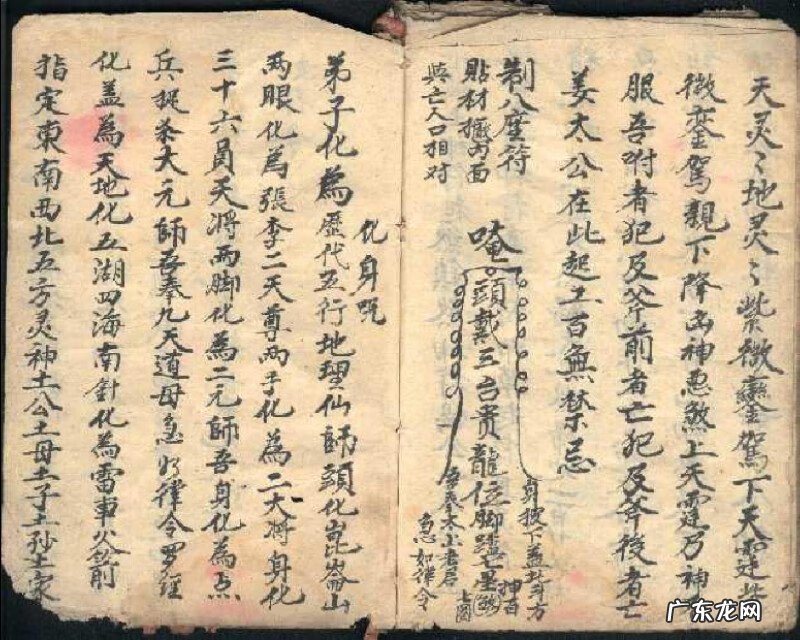 天灵〻地灵〻紫微鑾駕下天霆紫
微鑾駕親下降凶神惡煞上天霆乃神
服吾咐者犯及斧前者亡犯及斧後者亡
姜太公在此起工百無禁忌
制八座符
貼材櫃內面
與亡人口相对
唵
頭戴三台贵龍位脚踏七星
身披下蓋
吾奉太上老君
急如律令
化身咒
弟子化為歷代五行地理仙師頭化崑崙山
两眼化為張李二天尊两手化為二大將身化
三十六員天將两脚化為二元師吾身化為点
兵捉杀大元師吾奉九天道母急如律令罗经
化蓋為天地化五湖四海南針化為雷車火箭
指定東南西北五方灵神土公土母土子土孙土家
广东龙网